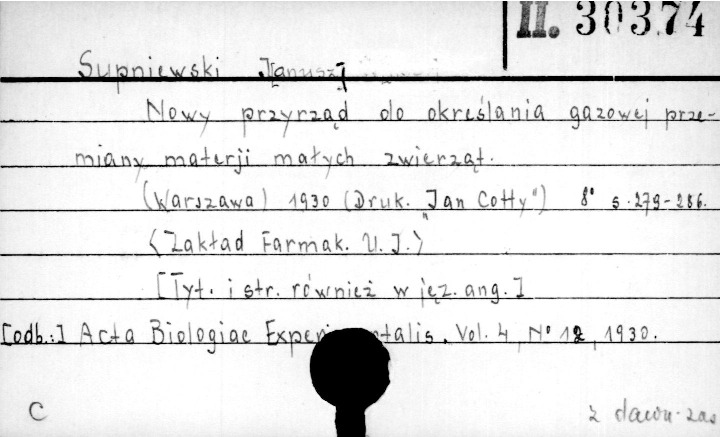 II. 30374
Supniewski J[anusz]
Nowy przyrząd do określania gazowej prze-
miany materji małych zwierząt.
(Warszawa) 1930 (Druk. "Jan Cotty") 8° s. 279-286.
<Zakład Farmak. U. J.>
[Tyt. i str. również w jęz. ang.]
[odb.:] Acta Biologiae Experimentalis. Vol. 4, N° 12, 1930.
C
z dawn. zas